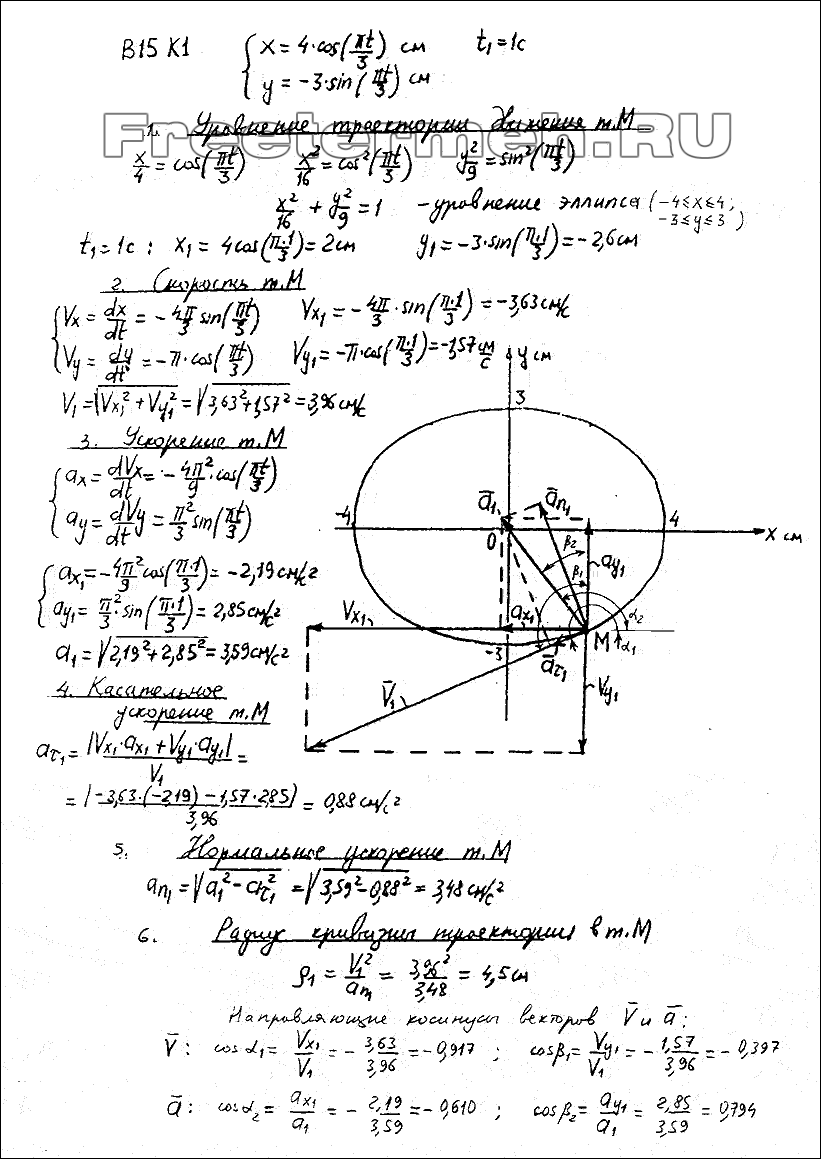 В15 К1 { x = 4·cos(πt/3) см t₁=1с
y = -3·sin(πt/3) см
Freeter-meh.RU
1. Уравнение траектории движения т.М
x/4 = cos(πt/3) x²/16 = cos²(πt/3) y²/9 = sin²(πt/3)
x²/16 + y²/9 = 1 - уравнение эллипса (-4≤x≤4; -3≤y≤3)
t₁=1с : x₁ = 4cos(π·1/3) = 2см y₁ = -3·sin(π·1/3) = -2,6см
2. Скорость т.М
{ Vx = dx/dt = -4π/3 sin(πt/3) Vx₁ = -4π/3 · sin(π·1/3) = -3,63 см/с
Vy = dy/dt = -π·cos(πt/3) Vy₁ = -π·cos(π·1/3) = -1,57 см/с
V₁ = √(Vx₁² + Vy₁²) = √(3,63²+1,57²) = 3,96 см/с
3. Ускорение т.М
{ ax = dVx/dt = -4π²/9 ·cos(πt/3)
ay = dVy/dt = π²/3 sin(πt/3)
{ ax₁ = -4π²/9 cos(π·1/3) = -2,19 см/с²
ay₁ = π²/3 · sin(π·1/3) = 2,85 см/с²
a₁ = √(2,19²+2,85²) = 3,59 см/с²
4. Касательное
ускорение т.М
aτ₁ = |Vx₁·ax₁ + Vy₁·ay₁| / V₁ =
= |-3,63·(-2,19) - 1,57·2,85| / 3,96 = 0,88 см/с²
y см
3
a̅₁
a̅n₁
-4
4
0
x см
β₂
β₁
ay₁
Vx₁
ax₁
α₂
M
α₁
-3
a̅τ₁
V̅₁
Vy₁
5. Нормальное ускорение т.М
an₁ = √(a₁² - aτ₁²) = √(3,59²-0,88²) = 3,48 см/с²
6. Радиус кривизны траектории в т.М
ρ₁ = V₁²/an₁ = 3,96²/3,48 = 4,5 см
Направляющие косинусы векторов V̅ и a̅ :
V̅ : cosα₁ = Vx₁/V₁ = -3,63/3,96 = -0,917 ; cosβ₁ = Vy₁/V₁ = -1,57/3,96 = -0,397
a̅ : cosα₂ = ax₁/a₁ = -2,19/3,59 = -0,610 ; cosβ₂ = ay₁/a₁ = 2,85/3,59 = 0,794